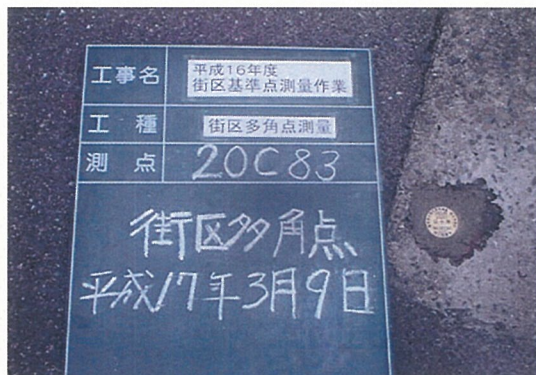 工事名
平成16年度
街区基準点測量作業
工種
街区多角点測量
測点
20C83
街区多角点
平成17年3月9日